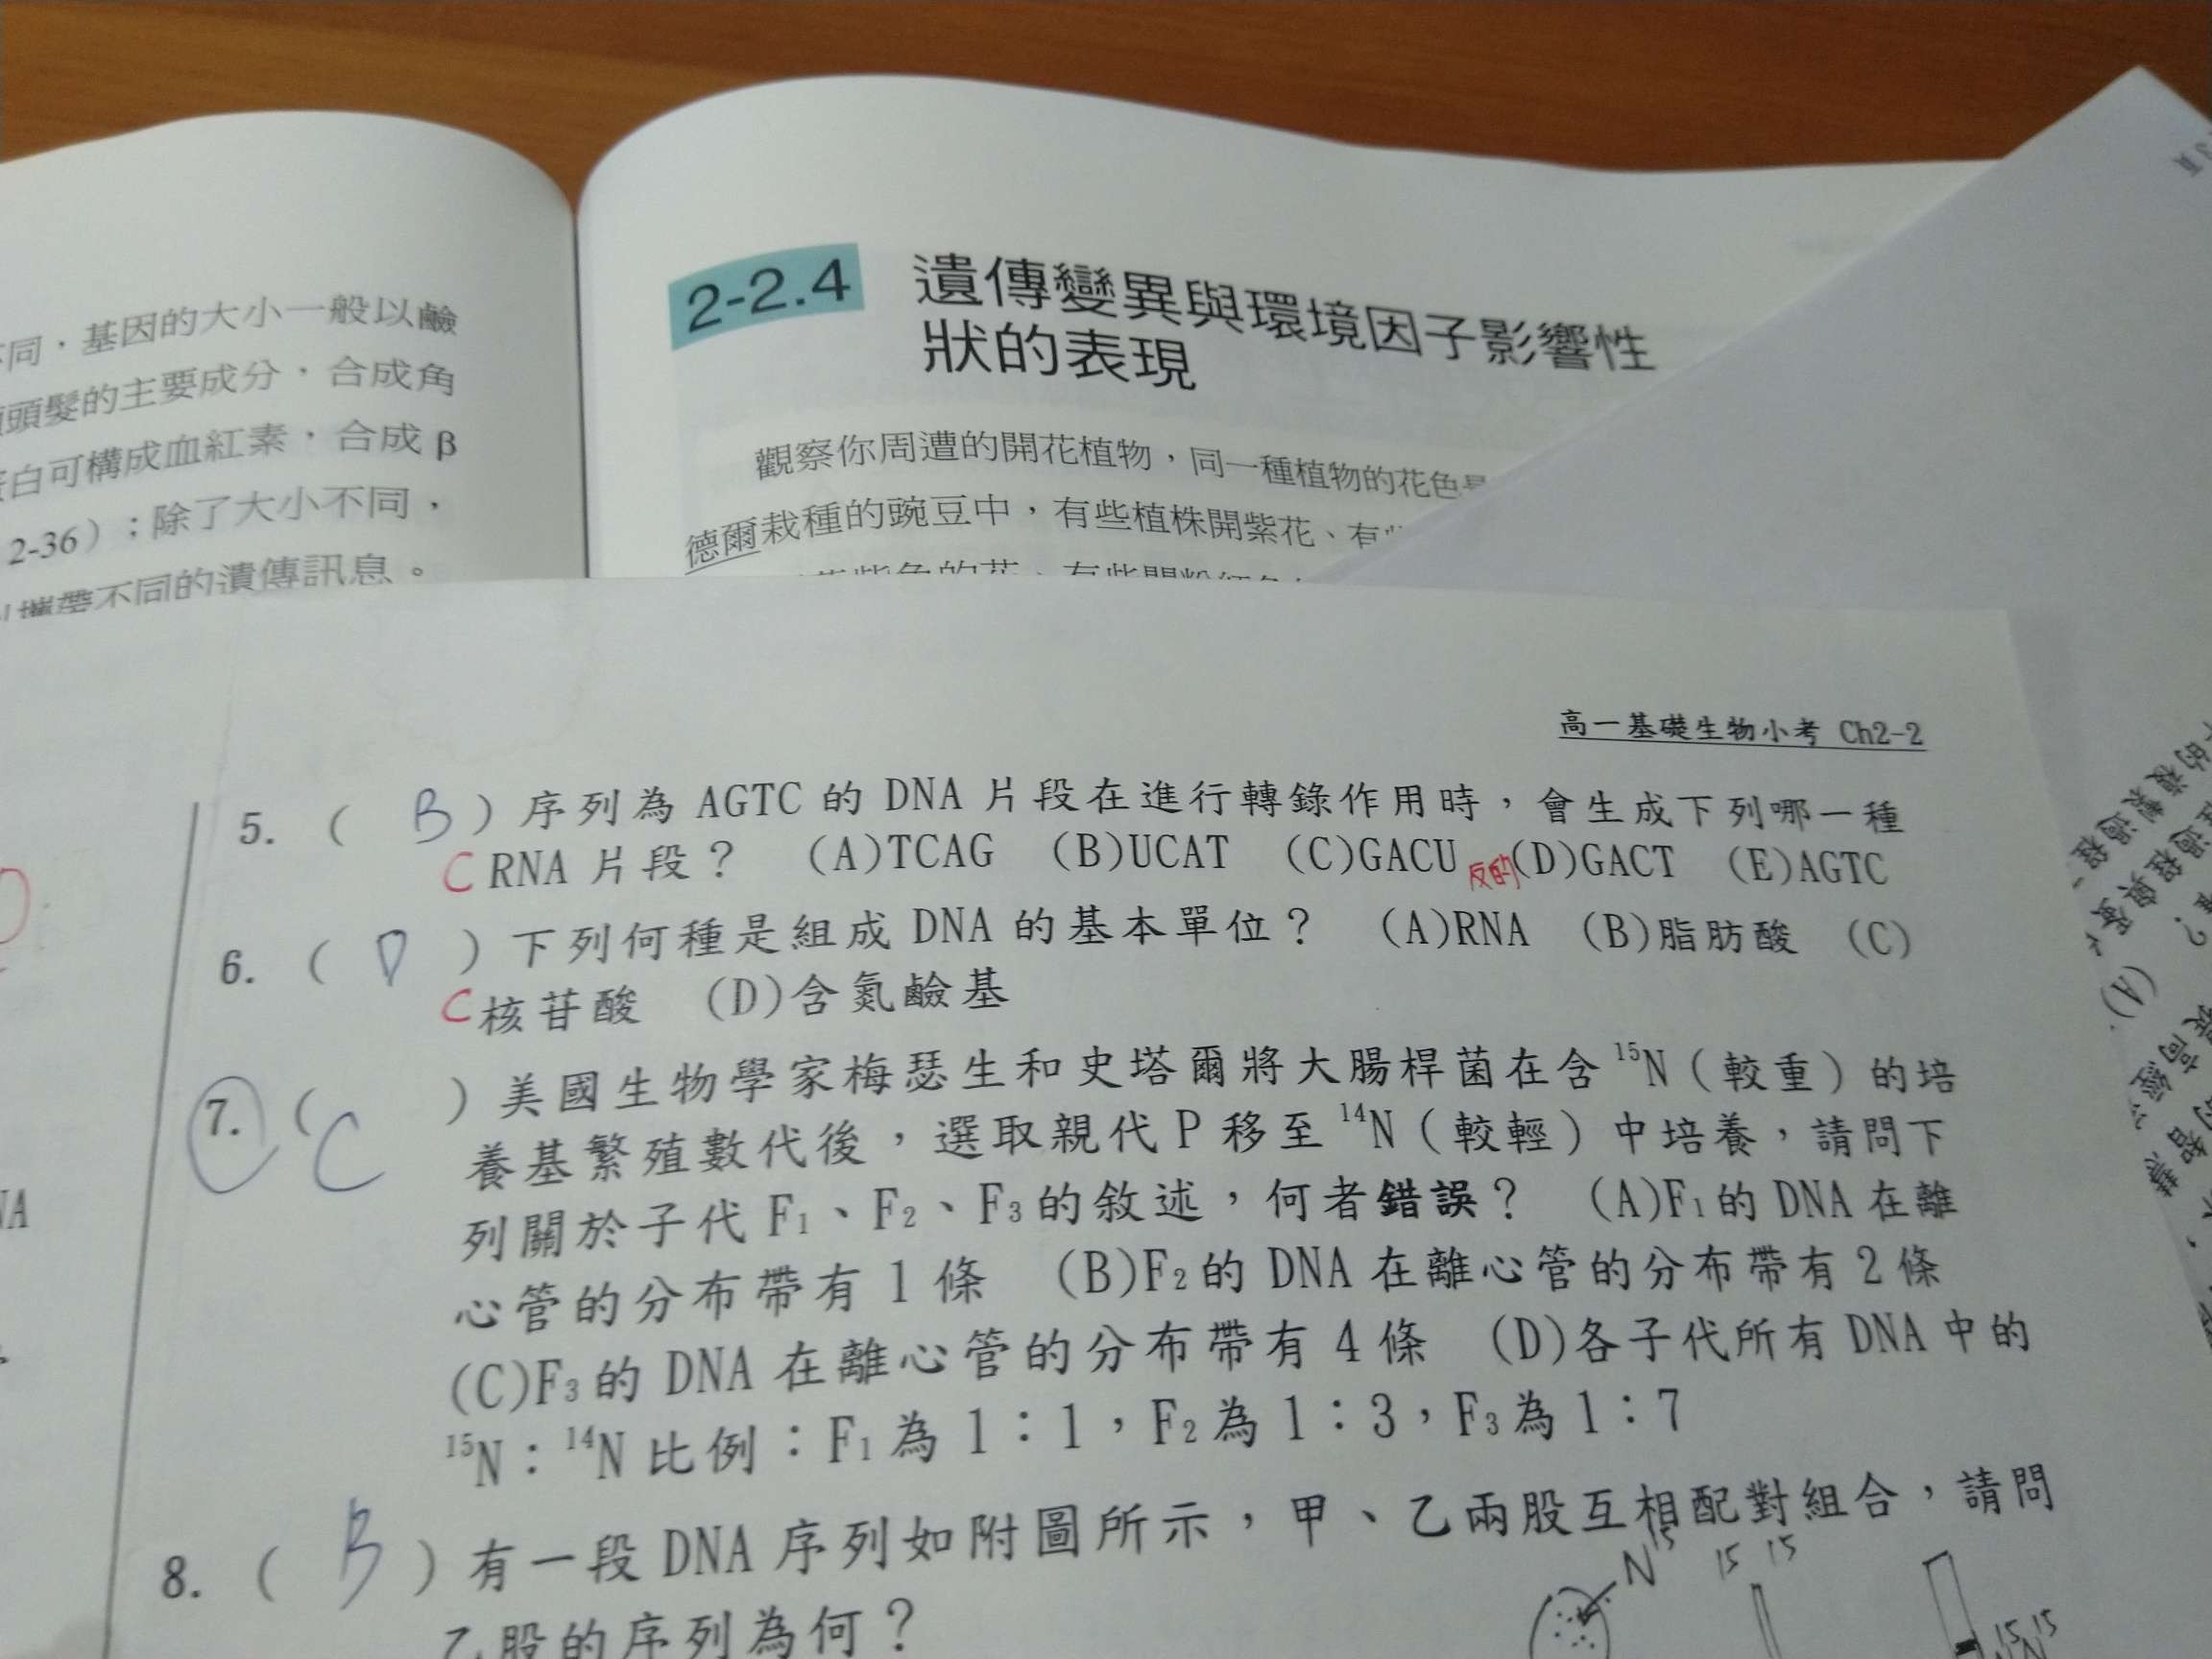 同，基因的大小一般以鹼
頭髮的主要成分，合成角
白可構成血紅素，合成 β
2-36）；除了大小不同，
攜帶不同的遺傳訊息。
2-2.4 遺傳變異與環境因子影響性
狀的表現
觀察你周遭的開花植物，同一種植物的花色
德爾栽種的豌豆中，有些植株開紫花、有
高一基礎生物小考 Ch2-2
5. （ B ）序列為 AGTC 的 DNA 片段在進行轉錄作用時，會生成下列哪一種
C RNA 片段？ (A)TCAG (B)UCAT (C)GACU 反的 (D)GACT (E)AGTC
6. （ D ）下列何種是組成 DNA 的基本單位？ (A)RNA (B)脂肪酸 (C)
C 核苷酸 (D)含氮鹼基
7. （ C ）美國生物學家梅瑟生和史塔爾將大腸桿菌在含 ¹⁵N（較重）的培
養基繁殖數代後，選取親代 P 移至 ¹⁴N（較輕）中培養，請問下
列關於子代 F₁、F₂、F₃的敘述，何者錯誤？ (A)F₁的 DNA 在離
心管的分布帶有 1 條 (B)F₂的 DNA 在離心管的分布帶有 2 條
(C)F₃的 DNA 在離心管的分布帶有 4 條 (D)各子代所有 DNA 中的
¹⁵N：¹⁴N 比例：F₁為 1：1，F₂為 1：3，F₃為 1：7
8. （ B ）有一段 DNA 序列如附圖所示，甲、乙兩股互相配對組合，請問
乙股的序列為何？
N¹⁵ 15 15